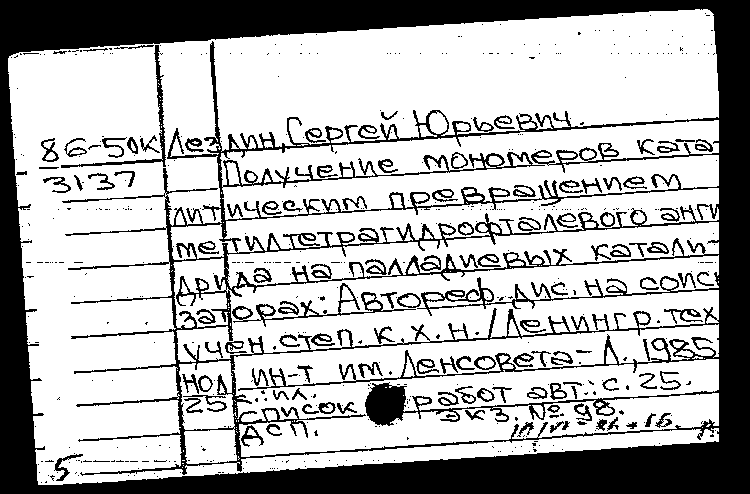 86-50К Лездин, Сергей Юрьевич.
3137 Получение мономеров ката-
литическим превращением
метилтетрагидрофталевого анги
дрида на палладиевых катали-
заторах: Автореф. дис. на соиск
учен. степ. к.х.н. / Ленингр. тех
нол ин-т им. Ленсовета - Л., 1985
25 с.: ил.
список работ авт.: с. 25.
ДСП. экз. № 98.
5